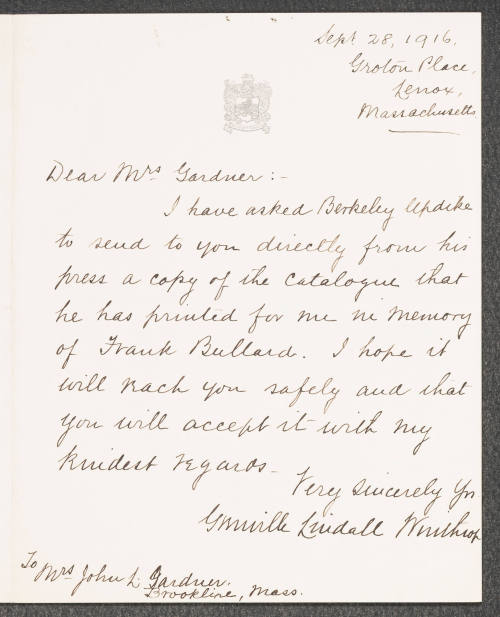 Sept. 28, 1916.
Groton Place,
Lenox,
Massachusetts
Dear Mrs Gardner :-
I have asked Berkeley Updike
to send to you directly from his
press a copy of the Catalogue that
he has printed for me in Memory
of Frank Bullard. I hope it
will reach you safely and that
you will accept it with my
kindest regards -
Very Sincerely Yrs
Grenville Lindall Winthrop
To
Mrs John L. Gardner.
Brookline, Mass.